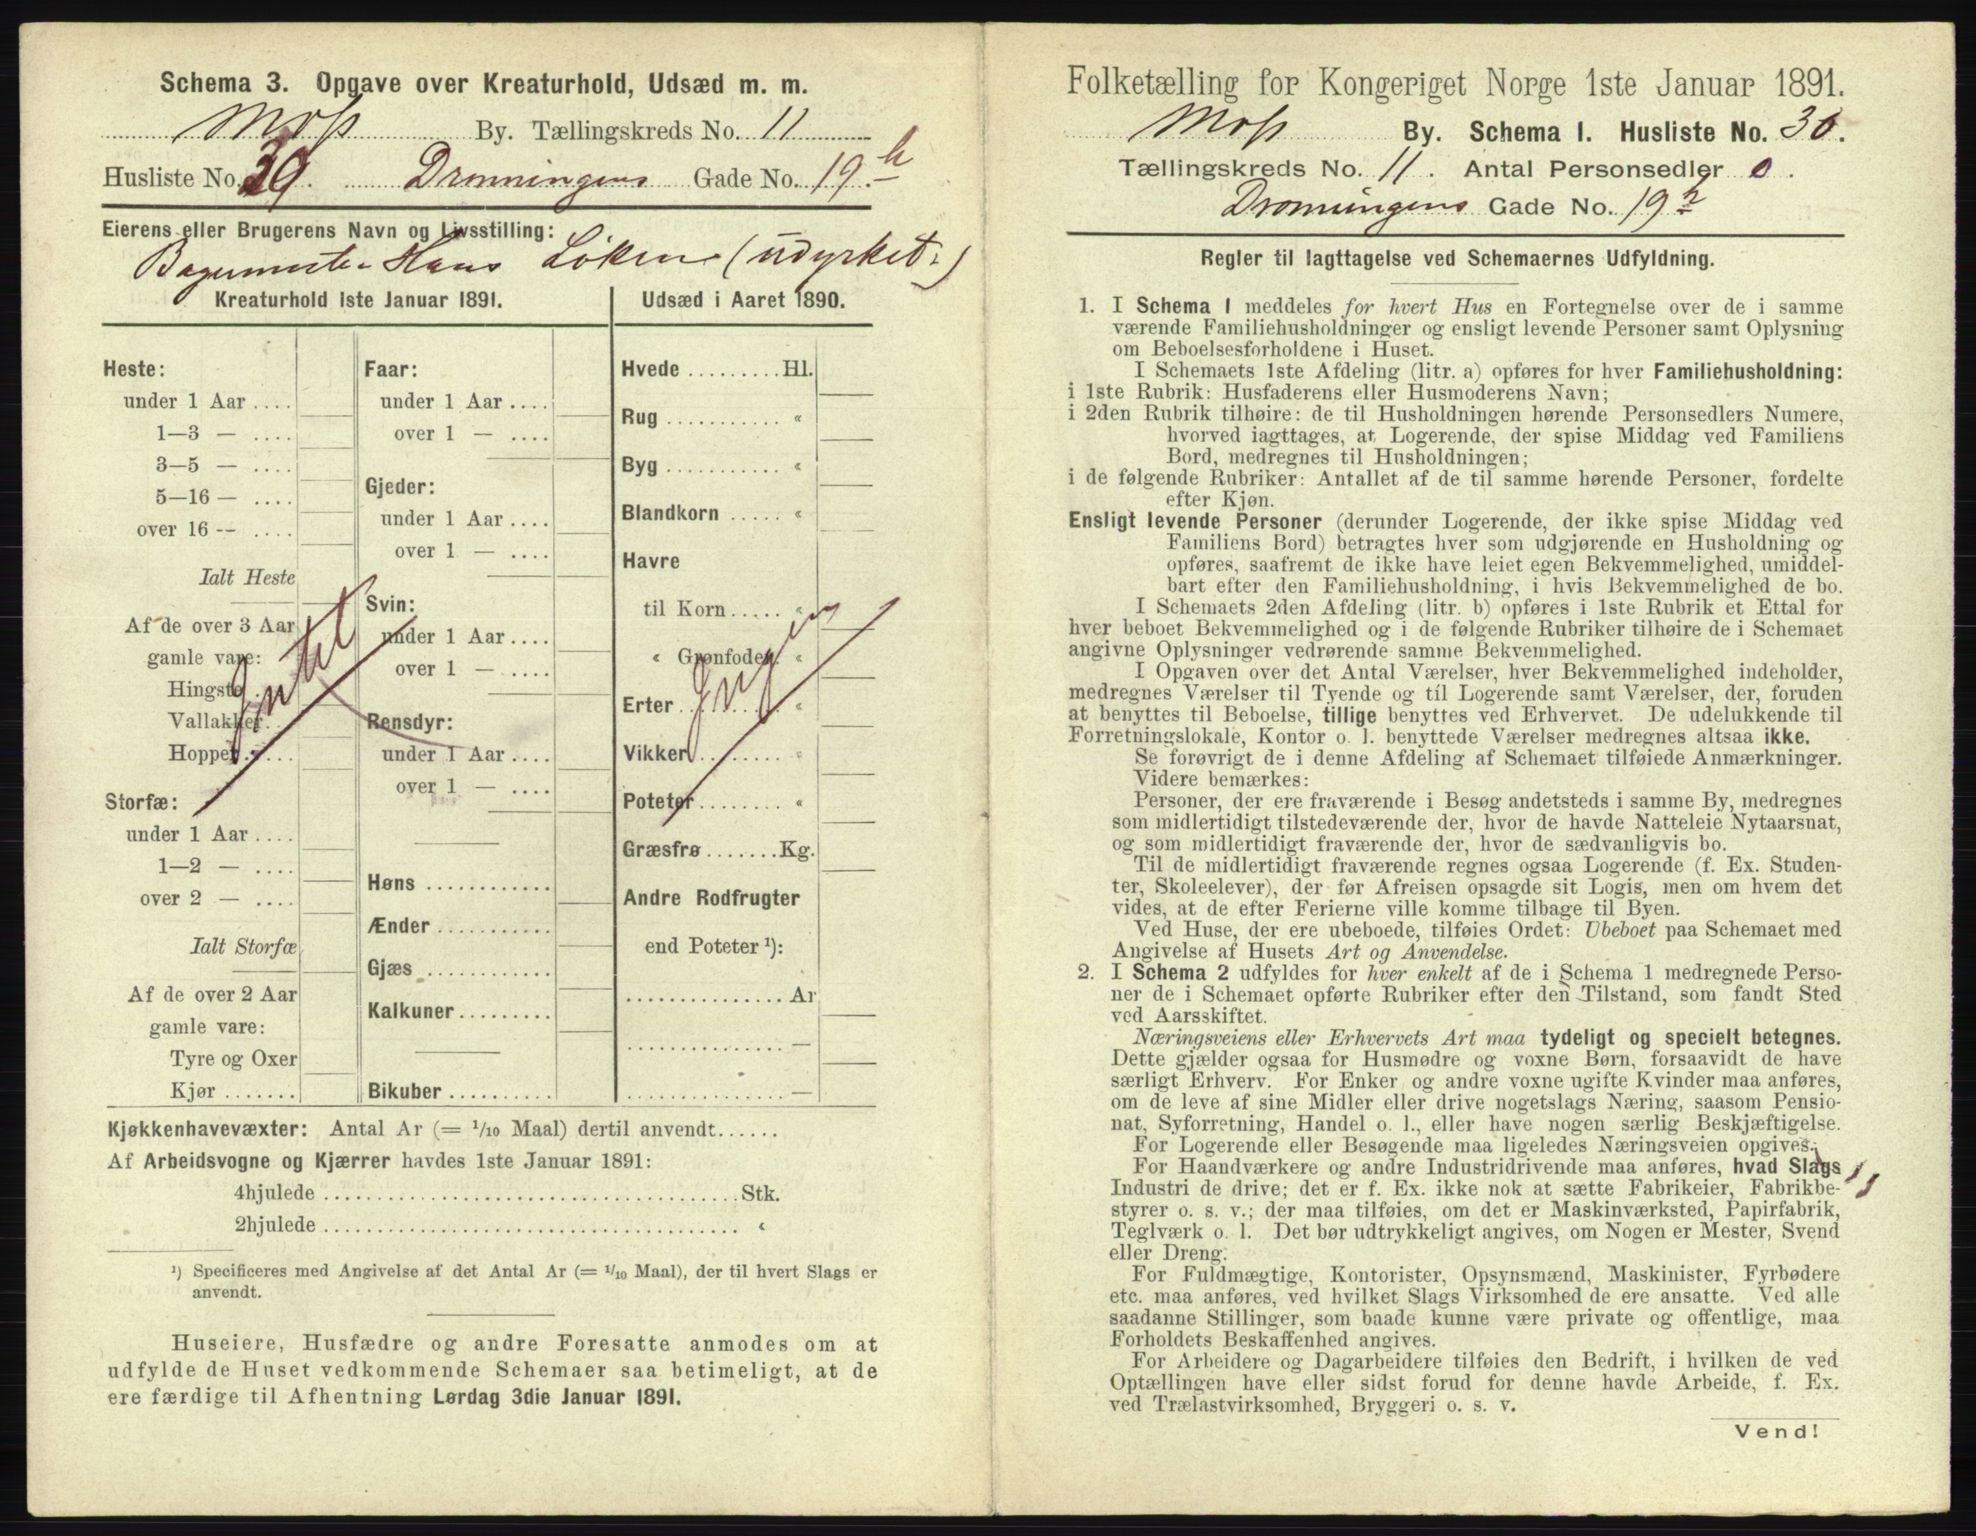 Schema 3. Opgave over Kreaturhold, Udsæd m. m.
Moss By. Tællingskreds No. 11
Husliste No. 39. Dronningens Gade No. 19 h
Eierens eller Brugerens Navn og Livsstilling:
Bagermester Hans Løken (udyrket.)
Kreaturhold 1ste Januar 1891.
Heste:
under 1 Aar ....
1—3 — ....
3—5 — ....
5—16 — ....
over 16 — ....
Ialt Heste
Af de over 3 Aar
gamle vare:
Hingste .
Vallakker..
Hopper....
Intet
Storfæ:
under 1 Aar ....
1—2 — ....
over 2 — ....
Ialt Storfæ
Af de over 2 Aar
gamle vare:
Tyre og Oxer
Kjør .......
Faar:
under 1 Aar ....
over 1 — ....
Gjeder:
under 1 Aar ....
over 1 — ....
Svin:
under 1 Aar ....
over 1 — ....
Rensdyr:
under 1 Aar ....
over 1 — ....
Høns ............
Ænder ...........
Gjæs ............
Kalkuner.........
Bikuber ..........
Udsæd i Aaret 1890.
Hvede .........Hl.
Rug ........... «
Byg ........... «
Blandkorn ..... «
Havre
til Korn..... «
« Grønfoder. «
Erter ......... «
Vikker......... «
Poteter........ «
Ingen
Græsfrø.......Kg.
Andre Rodfrugter
end Poteter ¹):
...............Ar
...............—
...............—
Kjøkkenhavevæxter: Antal Ar (= 1/10 Maal) dertil anvendt......
Af Arbeidsvogne og Kjærrer havdes 1ste Januar 1891:
4hjulede ........................................Stk.
2hjulede ........................................ «
¹) Specificeres med Angivelse af det Antal Ar (= 1/10 Maal), der til hvert Slags er
anvendt.
Huseiere, Husfædre og andre Foresatte anmodes om at
udfylde de Huset vedkommende Schemaer saa betimeligt, at de
ere færdige til Afhentning Lørdag 3die Januar 1891.
Folketælling for Kongeriget Norge 1ste Januar 1891.
Moss By. Schema 1. Husliste No. 30.
Tællingskreds No. 11. Antal Personsedler 0.
Dronningens Gade No. 19 h
Regler til Iagttagelse ved Schemaernes Udfyldning.
1. I Schema 1 meddeles for hvert Hus en Fortegnelse over de i samme
værende Familiehusholdninger og ensligt levende Personer samt Oplysning
om Beboelsesforholdene i Huset.
I Schemaets 1ste Afdeling (litr. a) opføres for hver Familiehusholdning:
i 1ste Rubrik: Husfaderens eller Husmoderens Navn;
i 2den Rubrik tilhøire: de til Husholdningen hørende Personsedlers Numere,
hvorved iagttages, at Logerende, der spise Middag ved Familiens
Bord, medregnes til Husholdningen;
i de følgende Rubriker: Antallet af de til samme hørende Personer, fordelte
efter Kjøn.
Ensligt levende Personer (derunder Logerende, der ikke spise Middag ved
Familiens Bord) betragtes hver som udgjørende en Husholdning og
opføres, saafremt de ikke have leiet egen Bekvemmelighed, umiddel-
bart efter den Familiehusholdning, i hvis Bekvemmelighed de bo.
I Schemaets 2den Afdeling (litr. b) opføres i 1ste Rubrik et Ettal for
hver beboet Bekvemmelighed og i de følgende Rubriker tilhøire de i Schemaet
angivne Oplysninger vedrørende samme Bekvemmelighed.
I Opgaven over det Antal Værelser, hver Bekvemmelighed indeholder,
medregnes Værelser til Tyende og til Logerende samt Værelser, der, foruden
at benyttes til Beboelse, tillige benyttes ved Erhvervet. De udelukkende til
Forretningslokale, Kontor o. l. benyttede Værelser medregnes altsaa ikke.
Se forøvrigt de i denne Afdeling af Schemaet tilføiede Anmærkninger.
Videre bemærkes:
Personer, der ere fraværende i Besøg andetsteds i samme By, medregnes
som midlertidigt tilstedeværende der, hvor de havde Natteleie Nytaarsnat,
og som midlertidigt fraværende der, hvor de sædvanligvis bo.
Til de midlertidigt fraværende regnes ogsaa Logerende (f. Ex. Studen-
ter, Skoleelever), der før Afreisen opsagde sit Logis, men om hvem det
vides, at de efter Ferierne ville komme tilbage til Byen.
Ved Huse, der ere ubeboede, tilføies Ordet: Ubeboet paa Schemaet med
Angivelse af Husets Art og Anvendelse.
2. I Schema 2 udfyldes for hver enkelt af de i Schema 1 medregnede Perso-
ner de i Schemaet opførte Rubriker efter den Tilstand, som fandt Sted
ved Aarsskiftet.
Næringsveiens eller Erhvervets Art maa tydeligt og specielt betegnes.
Dette gjælder ogsaa for Husmødre og voxne Børn, forsaavidt de have
særligt Erhverv. For Enker og andre voxne ugifte Kvinder maa anføres,
om de leve af sine Midler eller drive nogetslags Næring, saasom Pensio-
nat, Syforretning, Handel o. l., eller have nogen særlig Beskjæftigelse.
For Logerende eller Besøgende maa ligeledes Næringsveien opgives.
For Haandværkere og andre Industridrivende maa anføres, hvad Slags
Industri de drive; det er f. Ex. ikke nok at sætte Fabrikeier, Fabrikbe-
styrer o. s. v.; der maa tilføies, om det er Maskinværksted, Papirfabrik,
Teglværk o. l. Det bør udtrykkeligt angives, om Nogen er Mester, Svend
eller Dreng.
For Fuldmægtige, Kontorister, Opsynsmænd, Maskinister, Fyrbødere
etc. maa anføres, ved hvilket Slags Virksomhed de ere ansatte. Ved alle
saadanne Stillinger, som baade kunne være private og offentlige, maa
Forholdets Beskaffenhed angives.
For Arbeidere og Dagarbeidere tilføies den Bedrift, i hvilken de ved
Optællingen have eller sidst forud for denne havde Arbeide, f. Ex.
ved Trælastvirksomhed, Bryggeri o. s. v.
Vend!